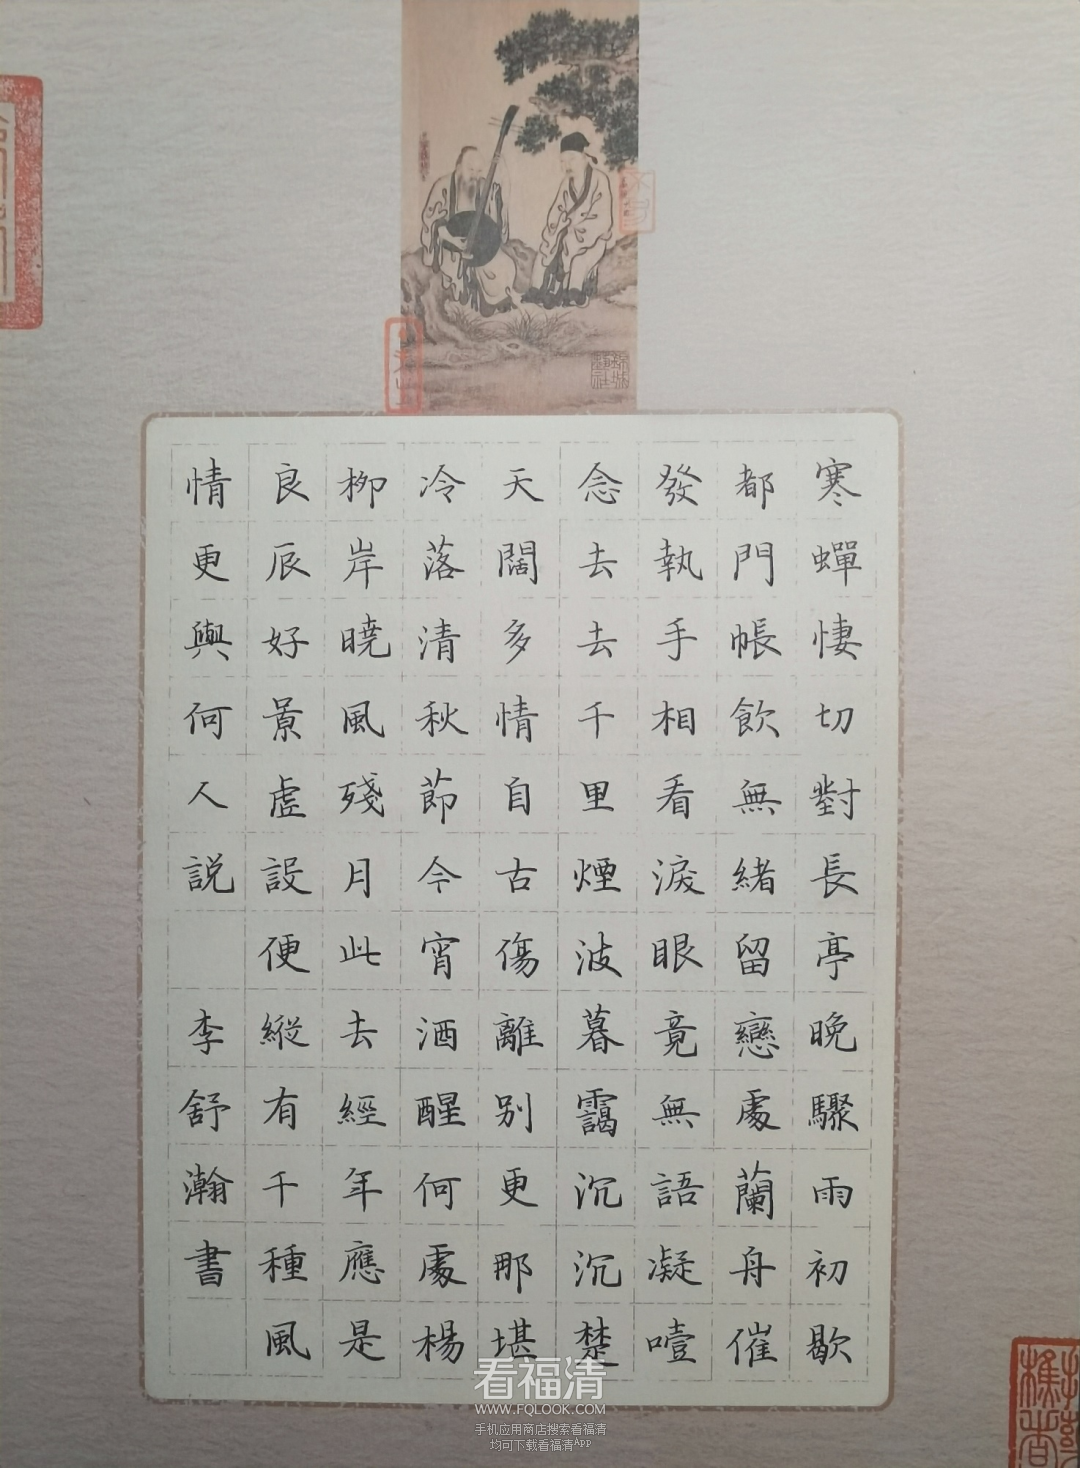 寒蟬悽切對長亭晚驟雨初歇
都門帳飲無緒留戀處蘭舟催
發執手相看淚眼竟無語凝噎
念去去千里煙波暮靄沉沉楚
天闊多情自古傷離別更那堪
冷落清秋節今宵酒醒何處楊
柳岸曉風殘月此去經年應是
良辰好景虛設便縱有千種風
情更與何人説
李舒瀚書
看福清
WWW.FQLOOK.COM
手机应用商店搜索看福清
均可下载看福清App